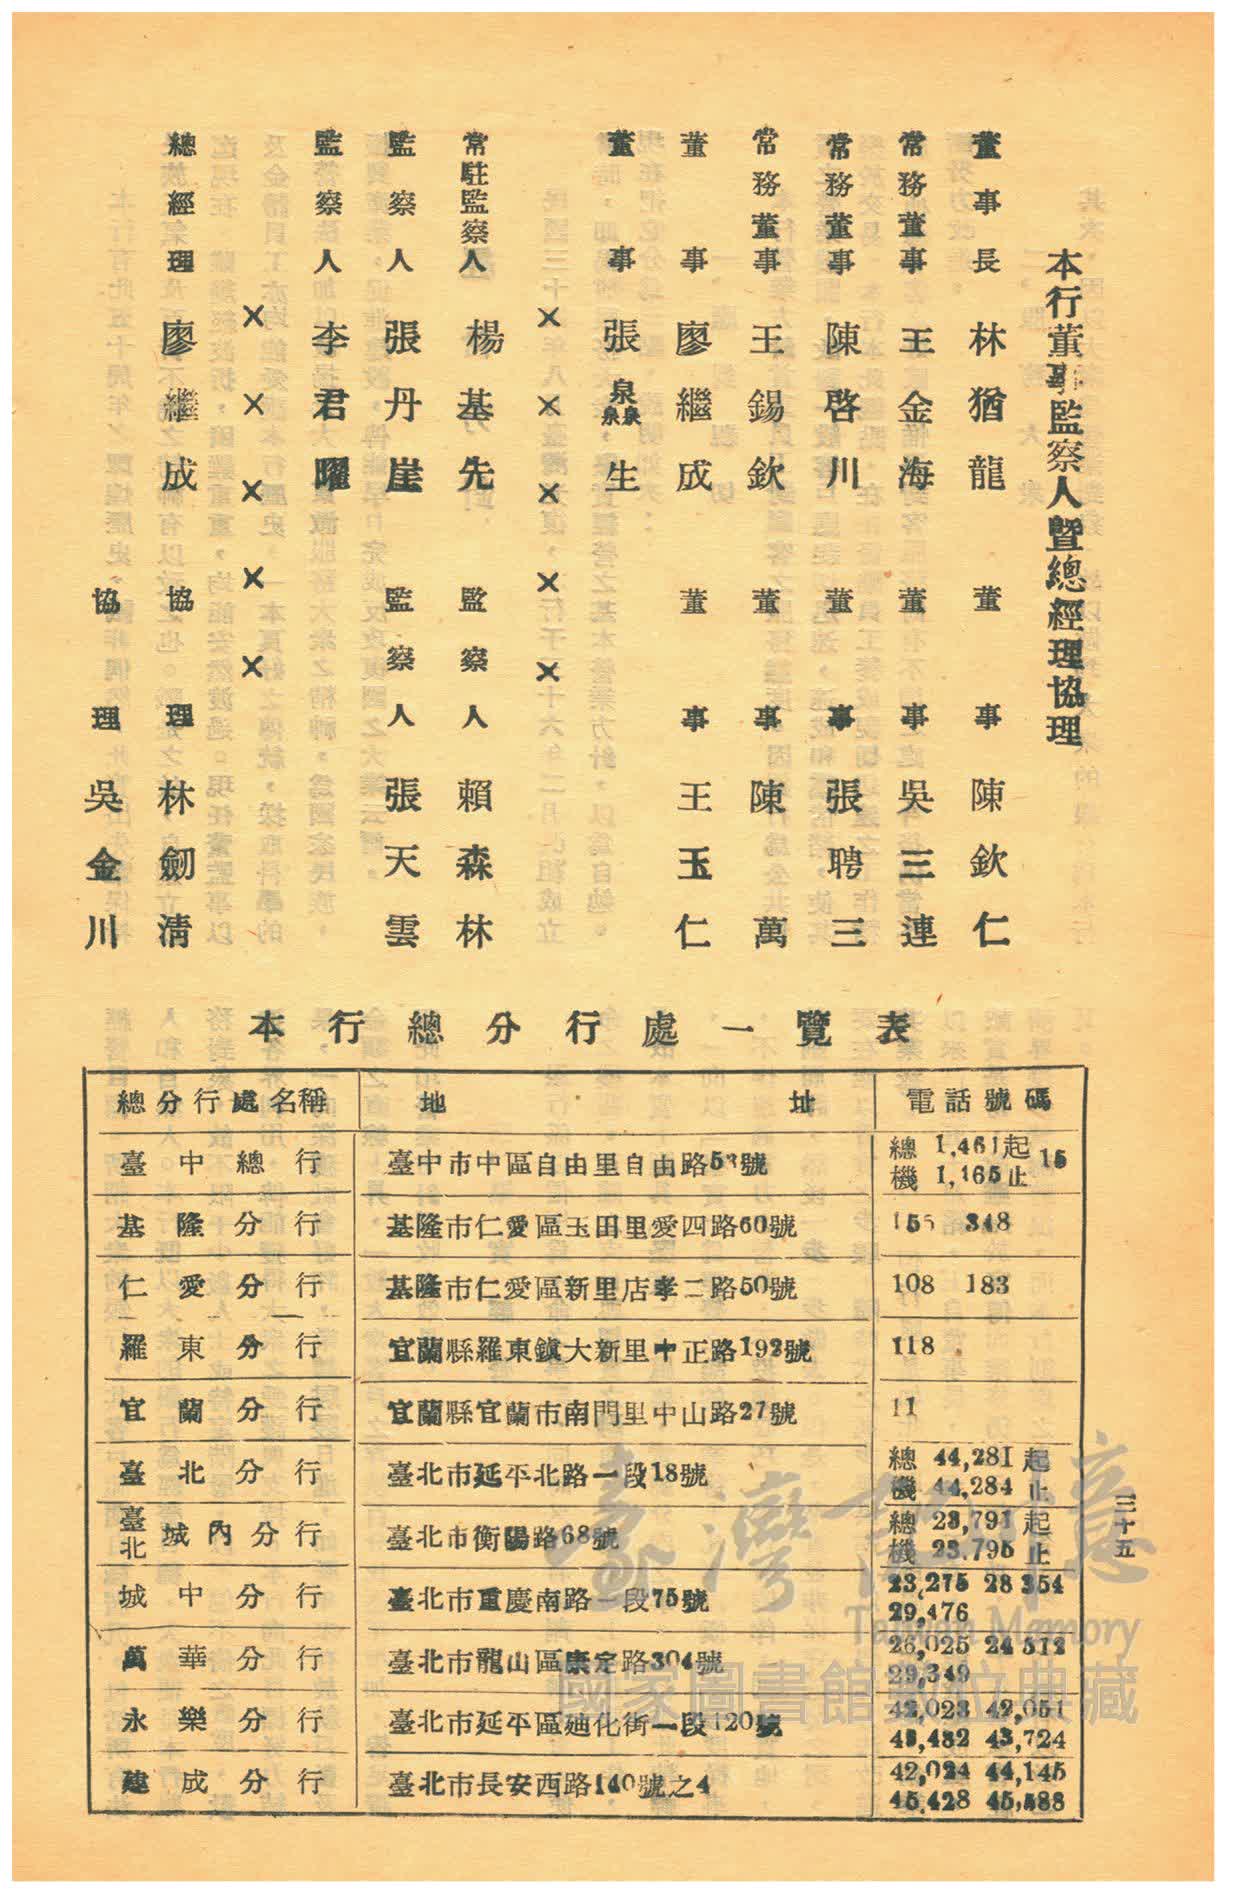 本行董事監察人暨總經理協理
董事長 林猶龍 董事 陳欽仁
常務董事 王金海 董事 吳三連
常務董事 陳啓川 董事 張聘三
常務董事 王錫欽 董事 陳萬
董事 廖繼成 董事 王玉仁
董事 張灥生
×××××
常駐監察人 楊基先 監察人 賴森林
監察人 張丹崖 監察人 張天雲
監察人 李君曜
×××××
總經理 廖繼成 協理 林劒清
協理 吳金川
本行總分行處一覽表
總分行處名稱 地址 電話號碼
臺中總行 臺中市中區自由里自由路53號 總機 1,461起 1,465止 15
基隆分行 基隆市仁愛區玉田里愛四路60號 155 348
仁愛分行 基隆市仁愛區新里店孝二路50號 108 183
羅東分行 宜蘭縣羅東鎮大新里中正路192號 118
宜蘭分行 宜蘭縣宜蘭市南門里中山路27號 11
臺北分行 臺北市延平北路一段18號 總機 44,281起 44,284止
臺北城內分行 臺北市衡陽路68號 總機 23,791起 23,795止
城中分行 臺北市重慶南路一段75號 23,275 28354 29,476
萬華分行 臺北市龍山區康定路304號 26,025 24512 29,349
永樂分行 臺北市延平區廸化街一段120號 42,023 42,051 43,482 43,724
建成分行 臺北市長安西路140號之4 42,024 44,145 45,428 45,588
三十五
臺灣記憶
Taiwan Memory
國家圖書館數位典藏